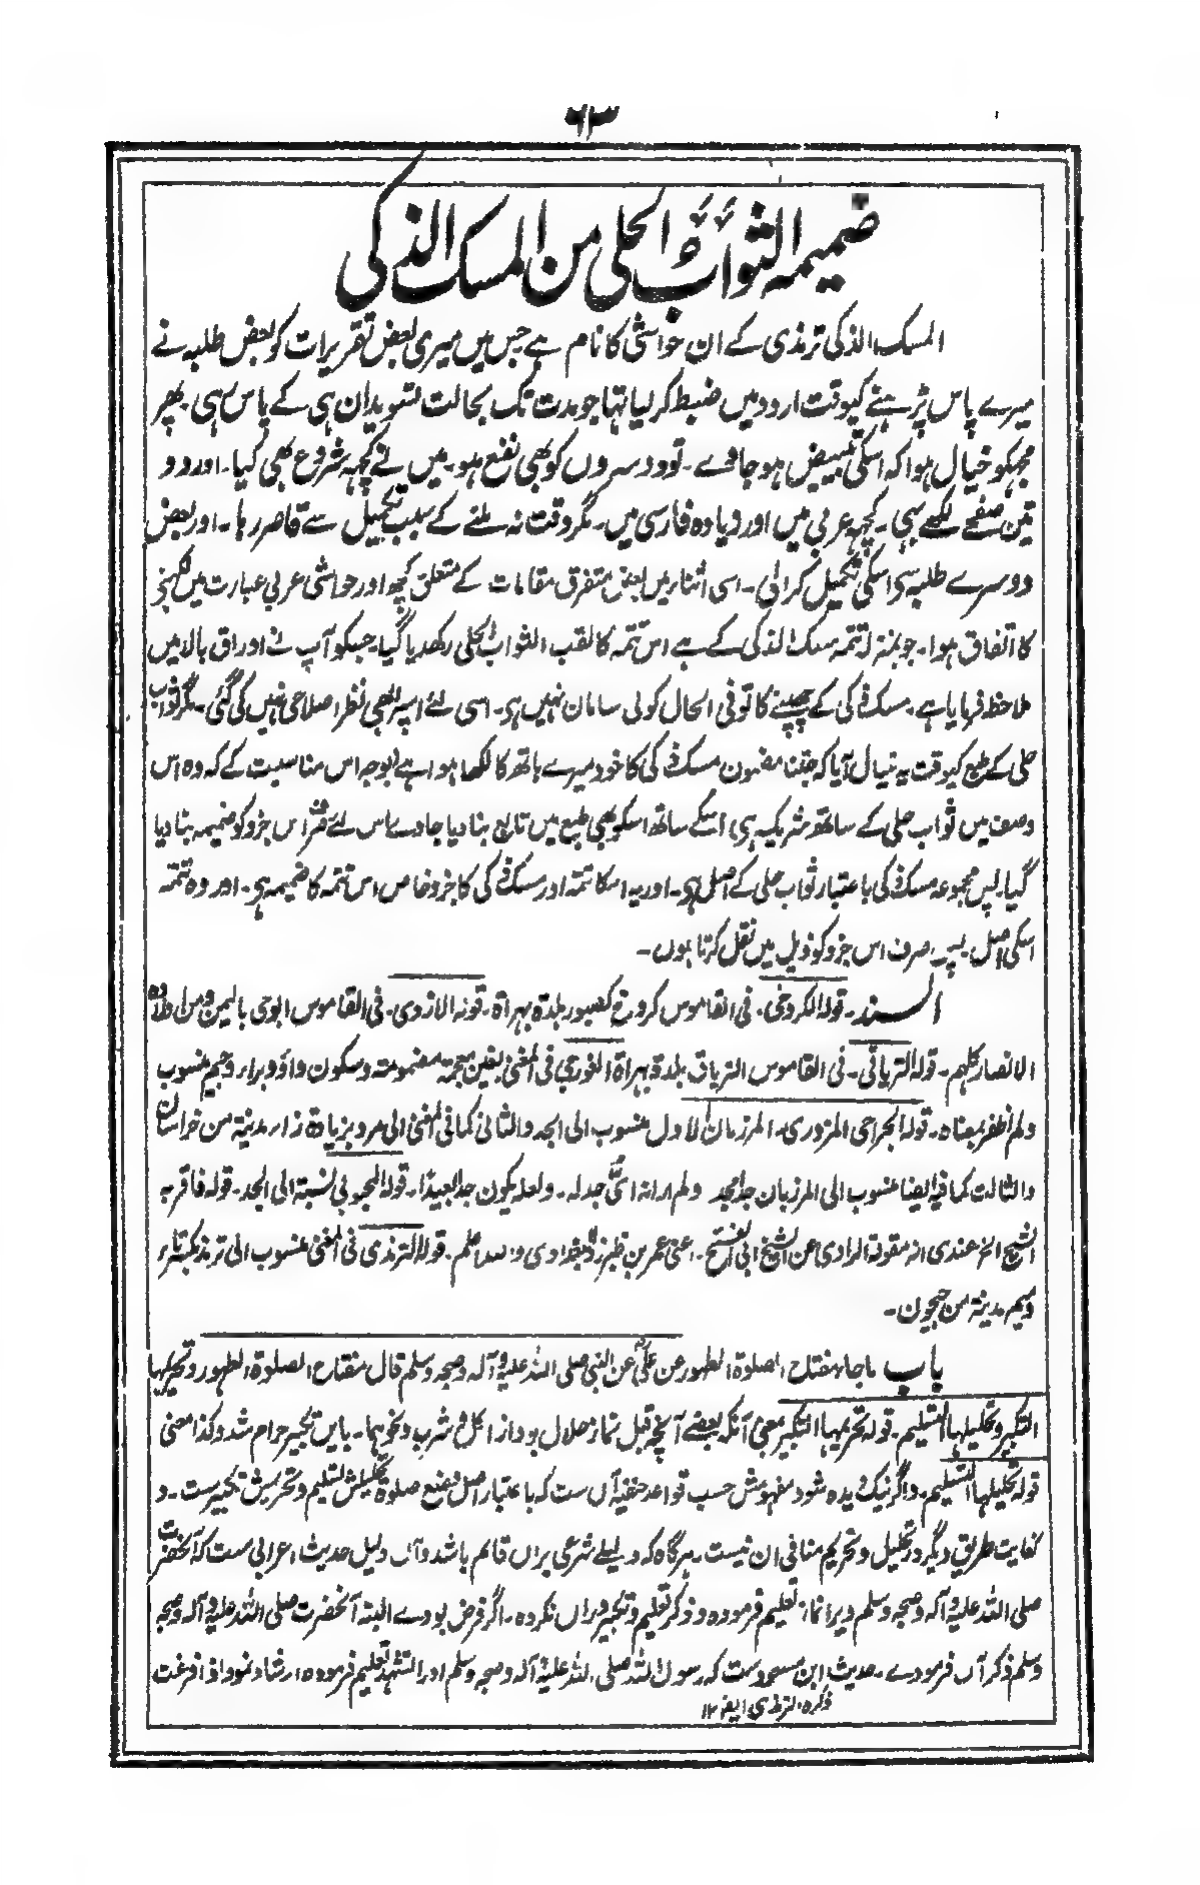 ٦٣
ضمیمہ الثواب الحلی من المسک الذکی
المسک الذکی ترمذی کے ان حواشی کا نام ہے جس میں میری بعض تقریرات کو بعض طلبہ نے
میرے پاس پڑہنے کیوقت اردو میں ضبط کرلیا تہا جو مدت تک بحالت تسوید ان ہی کے پاس رہی پھر
مجہکو خیال ہوا کہ اسکی تبییض ہوجاوے۔ تو دوسروں کو بھی نفع ہو۔ میں نے کچہہ شروع بھی کیا۔ اور دو
تین صفحے لکھے بہی۔ کچہہ عربی میں اور زیادہ فارسی میں۔ مگر وقت نہ ملنے کے سبب تکمیل سے قاصر رہا۔ اور بعض
دوسرے طلبہ سی اسکی تکمیل کرائی۔ اسی اثنا میں بعض متفرق مقامات کے متعلق کچھ اور حواشی عربی عبارت میں لکہنے
کا اتفاق ہوا۔ جو بمنزلہ تتمہ مسک الذکی کے ہے اس تتمہ کا لقب الثواب الحلی رکھدیا گیا۔ جسکو آپ نے اوراق بالا میں
ملاحظہ فرمایا ہے۔ مسک ذکی کے چھپنے کا تو فی الحال کوئی سامان نہیں ہی۔ اسی لئے اسپر ابھی نظر اصلاحی نہیں کی گئی۔ مگر ثواب
حلی کے طبع کیوقت یہ خیال آیا کہ جتنا مضمون مسک ذکی کا خود میرے ہاتھ کا لکھا ہوا ہے بوجہ اس مناسبت کے کہ وہ اس
وصف میں ثواب حلی کے ساتھ شریک ہی اسکے ساتھ اسکو بھی طبع میں تابع بنا دیا جاوے اس لئے صرف اس جزو کو ضمیمہ بنا دیا
گیا۔ پس مجموعہ مسک ذکی باعتبار ثواب حلی کے اصل ہی۔ اور یہ اسکا تتمہ اور مسک ذکی کا جزو خاص اس تتمہ کا ضمیمہ ہی۔ اور وہ تتمہ
اسکی اصل ہی۔ صرف اس جزو کو ذیل میں نقل کرتا ہوں۔
السند۔ قولہ الکروخی۔ فی القاموس کروخ کصبور بلدة بہراة۔ قولہ الازدی۔ فی القاموس ابو حی بالیمن ومن اولادہ
الانصار کلہم۔ قولہ التریاقی۔ فی القاموس التریاق بلدة بہراة الغورجی فی المغنی بغین معجمة مضمومة وسکون واو وبراء وجیم منسوب
ولم اظفر بمعناہ۔ قولہ الجراحی المروزی۔ المرزبانی الاول منسوب الی الجد والثانی کما فی المغنی الی مرو بزیادة زاء مدینة من خراسان
والثالث کما فیہ ایضا منسوب الی المرزبان جد محمد ولم ار انہ ای جد لہ۔ ولعلہ یکون جدا بعیدا۔ قولہ المحبوبی نسبة الی الجد۔ قولہ فاقر بہ
الشیخ الخ عندی انہ مقولة الراوی عن الشیخ ابی الفتح۔ اعنی عمر بن طبرزد البغدادی واللہ اعلم۔ قولہ الترمذی فی المغنی منسوب الی ترمذ بکسر تاء
ومیم مدینة من جیحون۔
باب ماجاء مفتاح الصلوة الطہور عن علی عن النبی صلی اللہ علیہ وآلہ وصحبہ وسلم قال مفتاح الصلوة الطہور وتحریمہا
التکبیر وتحلیلہا التسلیم۔ قولہ تحریمہا التکبیر بمعنی آنکہ بعضے آنچہ قبل نماز حلال بود از اکل و شرب ونحوہما۔ باین تکبیر حرام شد وکذا معنی
قولہ تحلیلہا التسلیم۔ واگر نیک دیدہ شود مفہومش حسب قواعد حنفیہ آن ست کہ باعتبار اصل وضع صلوة تحلیلش تسلیم وتحریمش تکبیر ست۔ و
کفایت طریق دیگر در تحلیل وتحریم منافی ان نیست۔ ہرگاہ کہ دلیلے شرعی بران قائم باشد وآن دلیل حدیث اعرابی ست کہ آنحضرت
صلی اللہ علیہ وآلہ وصحبہ وسلم ویرا نماز تعلیم فرمودہ و ذکر تسلیم وتکبیر دران نکردہ۔ اگر فرض بودے البتہ آنحضرت صلی اللہ علیہ وآلہ وصحبہ
وسلم ذکر آن فرمودے۔ حدیث ابن مسعود ست کہ رسول اللہ صلی اللہ علیہ وآلہ وصحبہ وسلم اورا تشہد تعلیم فرمودہ ارشاد نمود اذا فرغت
ذکرہ الترمذی ایضا ١٢